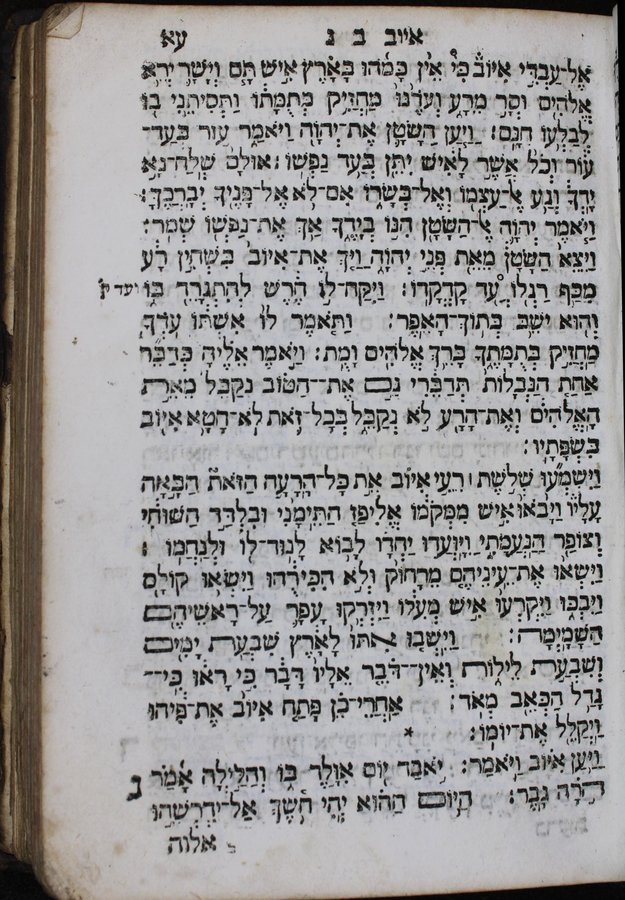 איוב ב נ עא
אֶל־עַבְדִּי אִיּוֹב כִּי אֵין כָּמֹהוּ בָּאָרֶץ אִישׁ תָּם וְיָשָׁר יְרֵא
אֱלֹהִים וְסָר מֵרָע וְעֹדֶנּוּ מַחֲזִיק בְּתֻמָּתוֹ וַתְּסִיתֵנִי בוֹ
לְבַלְּעוֹ חִנָּם׃ וַיַּעַן הַשָּׂטָן אֶת־יְהוָה וַיֹּאמַר עוֹר בְּעַד־
עוֹר וְכֹל אֲשֶׁר לָאִישׁ יִתֵּן בְּעַד נַפְשׁוֹ׃ אוּלָם שְׁלַח־נָא
יָדְךָ וְגַע אֶל־עַצְמוֹ וְאֶל־בְּשָׂרוֹ אִם־לֹא אֶל־פָּנֶיךָ יְבָרֲכֶךָּ׃
וַיֹּאמֶר יְהוָה אֶל־הַשָּׂטָן הִנּוֹ בְיָדֶךָ אַךְ אֶת־נַפְשׁוֹ שְׁמֹר׃
וַיֵּצֵא הַשָּׂטָן מֵאֵת פְּנֵי יְהוָה וַיַּךְ אֶת־אִיּוֹב בִּשְׁחִין רָע
מִכַּף רַגְלוֹ עַד קָדְקֳדוֹ׃ וַיִּקַּח־לוֹ חֶרֶשׂ לְהִתְגָּרֵד בּוֹ ועד ק׳
וְהוּא יֹשֵׁב בְּתוֹךְ־הָאֵפֶר׃ וַתֹּאמֶר לוֹ אִשְׁתּוֹ עֹדְךָ
מַחֲזִיק בְּתֻמָּתֶךָ בָּרֵךְ אֱלֹהִים וָמֻת׃ וַיֹּאמֶר אֵלֶיהָ כְּדַבֵּר
אַחַת הַנְּבָלוֹת תְּדַבֵּרִי גַּם אֶת־הַטּוֹב נְקַבֵּל מֵאֵת
הָאֱלֹהִים וְאֶת־הָרָע לֹא נְקַבֵּל בְּכָל־זֹאת לֹא־חָטָא אִיּוֹב
בִּשְׂפָתָיו׃
וַיִּשְׁמְעוּ שְׁלֹשֶׁת׀ רֵעֵי אִיּוֹב אֵת כָּל־הָרָעָה הַזֹּאת הַבָּאָה
עָלָיו וַיָּבֹאוּ אִישׁ מִמְּקֹמוֹ אֱלִיפַז הַתֵּימָנִי וּבִלְדַּד הַשּׁוּחִי
וְצוֹפַר הַנַּעֲמָתִי וַיִּוָּעֲדוּ יַחְדָּו לָבוֹא לָנוּד־לוֹ וּלְנַחֲמוֹ׃
וַיִּשְׂאוּ אֶת־עֵינֵיהֶם מֵרָחוֹק וְלֹא הִכִּירֻהוּ וַיִּשְׂאוּ קוֹלָם
וַיִּבְכּוּ וַיִּקְרְעוּ אִישׁ מְעִלוֹ וַיִּזְרְקוּ עָפָר עַל־רָאשֵׁיהֶם
הַשָּׁמָיְמָה׃ וַיֵּשְׁבוּ אִתּוֹ לָאָרֶץ שִׁבְעַת יָמִים
וְשִׁבְעַת לֵילוֹת וְאֵין־דֹּבֵר אֵלָיו דָּבָר כִּי רָאוּ כִּי־
גָדַל הַכְּאֵב מְאֹד׃ אַחֲרֵי־כֵן פָּתַח אִיּוֹב אֶת־פִּיהוּ
וַיְקַלֵּל אֶת־יוֹמוֹ׃ *
וַיַּעַן אִיּוֹב וַיֹּאמַר׃ יֹאבַד יוֹם אִוָּלֶד בּוֹ וְהַלַּיְלָה אָמַר ג
הֹרָה גָבֶר׃ הַיּוֹם הַהוּא יְהִי חֹשֶׁךְ אַל־יִדְרְשֵׁהוּ
אלוה